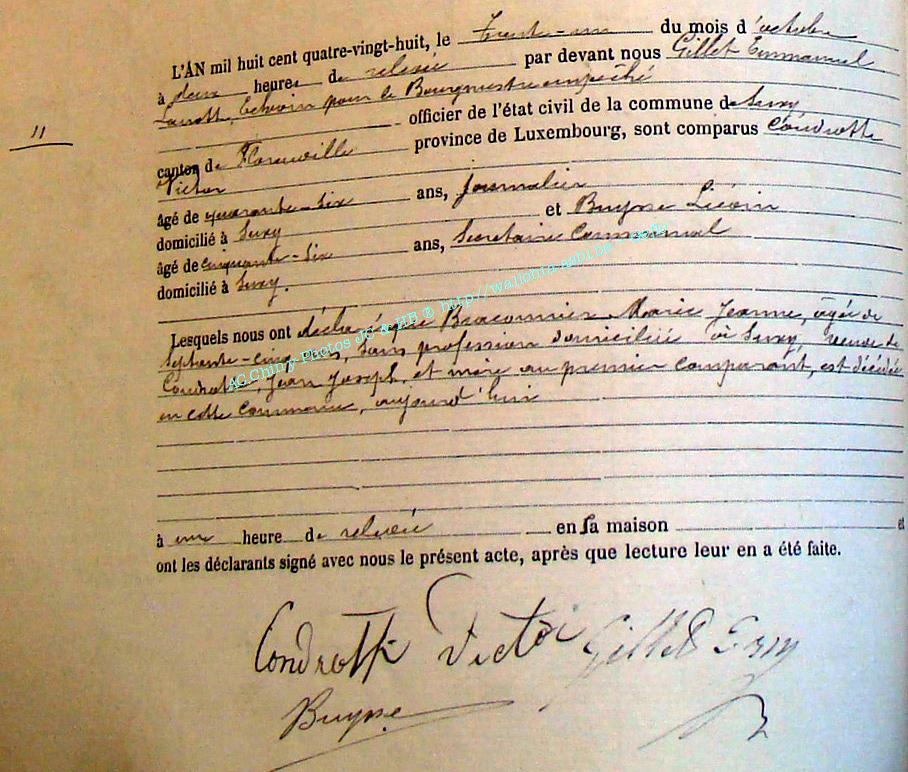 L'AN mil huit cent quatre-vingt-huit, le trente-un du mois d'octobre
à deux heures de relevée par devant nous Gillet Emmanuel
Echevin pour le Bourgmestre empêché
officier de l'état civil de la commune de Suxy
11
canton de Florenville province de Luxembourg, sont comparus Condrotte
Victor
âgé de quarante-six ans, journalier
domicilié à Suxy et Buysse Liévin
âgé de cinquante-six ans, Secretaire Communal
domicilié à Suxy.
AC Chiny Photos JC & HB ® http://wallonia-asbl.be
Lesquels nous ont déclaré que Braconnier Marie Jeanne, agée de
Septante-cinq ans, sans profession domiciliée à Suxy, veuve de
Condrotte, Jean Joseph, et mère au premier comparant, est décédée
en cette commune, aujourd'hui
à une heure de relevée en sa maison et
ont les déclarants signé avec nous le présent acte, après que lecture leur en a été faite.
Condrotte Victor Gillet Em
Buysse